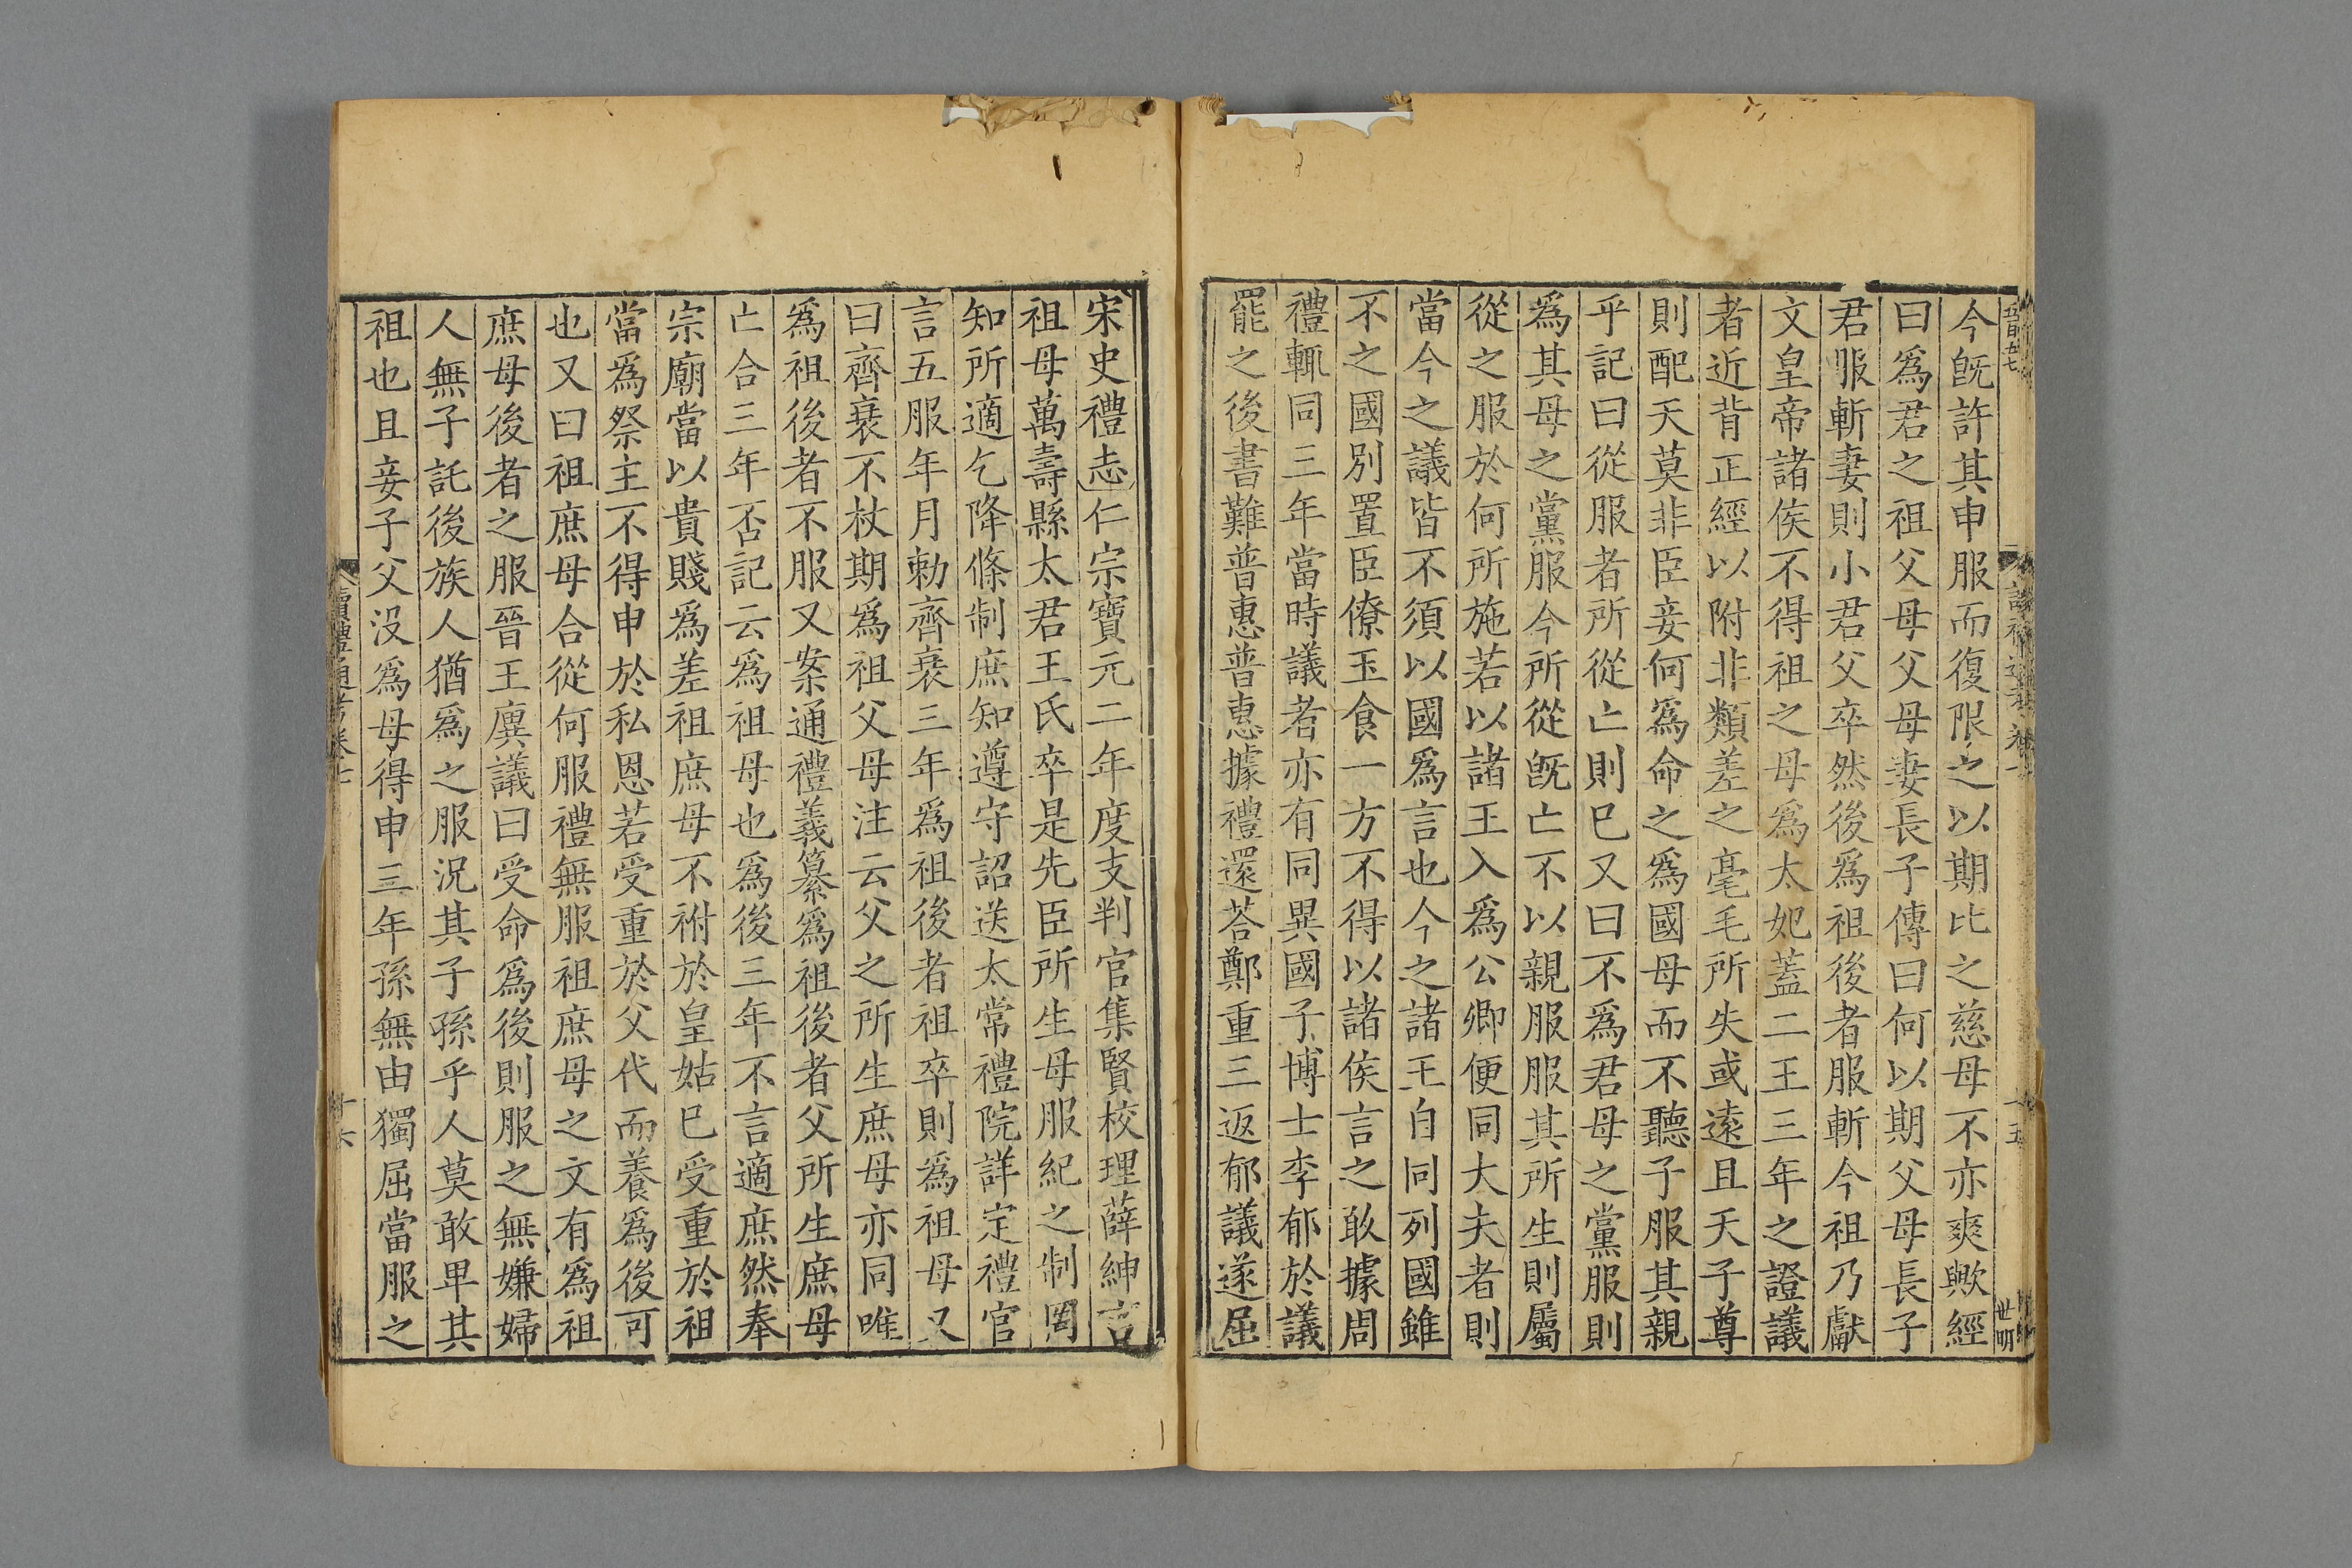 今旣許其申服而復限之以期比之慈母不亦爽歟經
曰爲君之祖父母父母妻長子傳曰何以期父母長子
君服斬妻則小君父卒然後爲祖後者服斬今祖乃獻
文皇帝諸侯不得祖之母爲太妃蓋二王三年之證議
者近背正經以附非類差之毫毛所失或遠且天子尊
則配天莫非臣妾何爲命之爲國母而不聽子服其親
乎記曰從服者所從亡則已又曰不爲君母之黨服則
爲其母之黨服今所從旣亡不以親服服其所生則屬
從之服於何所施若以諸王入爲公卿便同大夫者則
當今之議皆不須以國爲言也今之諸王自同列國雖
不之國別置臣僚玉食一方不得以諸侯言之敢據周
禮輒同三年當時議者亦有同異國子博士李郁於議
罷之後書難普惠普惠據禮還荅鄭重三返郁議遂屈
宋史禮志仁宗寶元二年度支判官集賢校理薛紳言
祖母萬壽縣太君王氏卒是先臣所生母服紀之制罔
知所適乞降條制庶知遵守詔送太常禮院詳定禮官
言五服年月勅齊衰三年爲祖後者祖卒則爲祖母又
曰齊衰不杖期爲祖父母注云父之所生庶母亦同唯
爲祖後者不服又案通禮義纂爲祖後者父所生庶母
亡合三年否記云爲祖母也爲後三年不言適庶然奉
宗廟當以貴賤爲差祖庶母不祔於皇姑已受重於祖
當爲祭主不得申於私恩若受重於父代而養爲後可
也又曰祖庶母合從何服禮無服祖庶母之文有爲祖
庶母後者之服晉王廙議曰受命爲後則服之無嫌婦
人無子託後族人猶爲之服況其子孫乎人莫敢卑其
祖也且妾子父没爲母得申三年孫無由獨屈當服之
讀禮通考卷十
十六